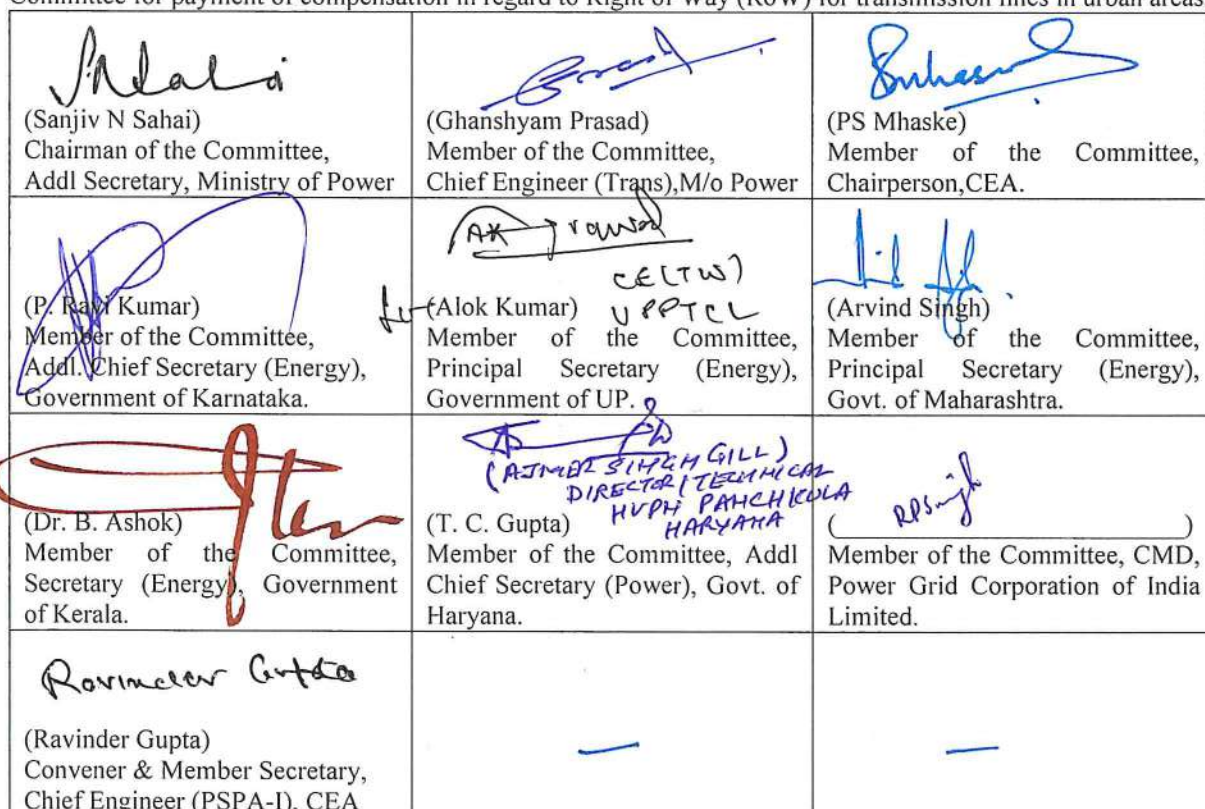 Committee for payment of compensation in regard to Right of Way (RoW) for transmission lines in urban areas
(Sanjiv N Sahai)
Chairman of the Committee,
Addl Secretary, Ministry of Power
(Ghanshyam Prasad)
Member of the Committee,
Chief Engineer (Trans),M/o Power
(PS Mhaske)
Member of the Committee,
Chairperson,CEA.
(P. Ravi Kumar)
Member of the Committee,
Addl. Chief Secretary (Energy),
Government of Karnataka.
AK
CE(TW)
UPPTCL
(Alok Kumar)
Member of the Committee,
Principal Secretary (Energy),
Government of UP.
(Arvind Singh)
Member of the Committee,
Principal Secretary (Energy),
Govt. of Maharashtra.
(Dr. B. Ashok)
Member of the Committee,
Secretary (Energy), Government
of Kerala.
(AJMER SINGH GILL)
DIRECTOR/TECHNICAL
HVPN PANCHKULA
HARYANA
(T. C. Gupta)
Member of the Committee, Addl
Chief Secretary (Power), Govt. of
Haryana.
RPSingh
(                    )
Member of the Committee, CMD,
Power Grid Corporation of India
Limited.
Ravinder Gupta
(Ravinder Gupta)
Convener & Member Secretary,
Chief Engineer (PSPA-I), CEA